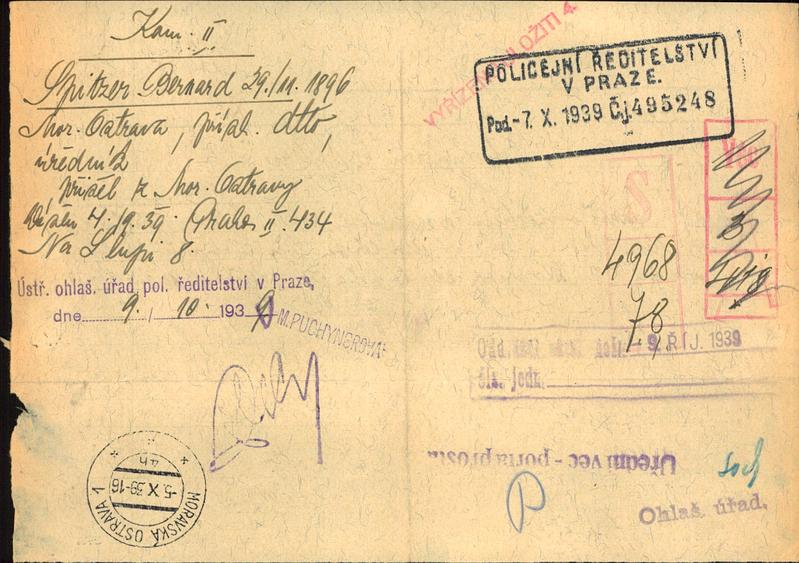 Kom. II
Spitzer Bernard 29./11. 1896
Mor. Ostrava, přísl. dtto,
úředník
přišel z Mor. Ostravy
4./9. 39. Praha II. 434
Na Slupi 8.
Ústř. ohlaš. úřad pol. ředitelství v Praze,
dne 9. / 10. 1939
M. PUCHYNEROVÁ
POLICEJNÍ ŘEDITELSTVÍ
V PRAZE.
Pod. -7. X. 1939 Čj. 495248
4968
78
-9. ŘÍJ. 1939
čís. jedn.
Úřední vec - porta prosta
Ohlaš. úřad.
MORAVSKÁ OSTRAVA 1
-5. X 39-16
4h